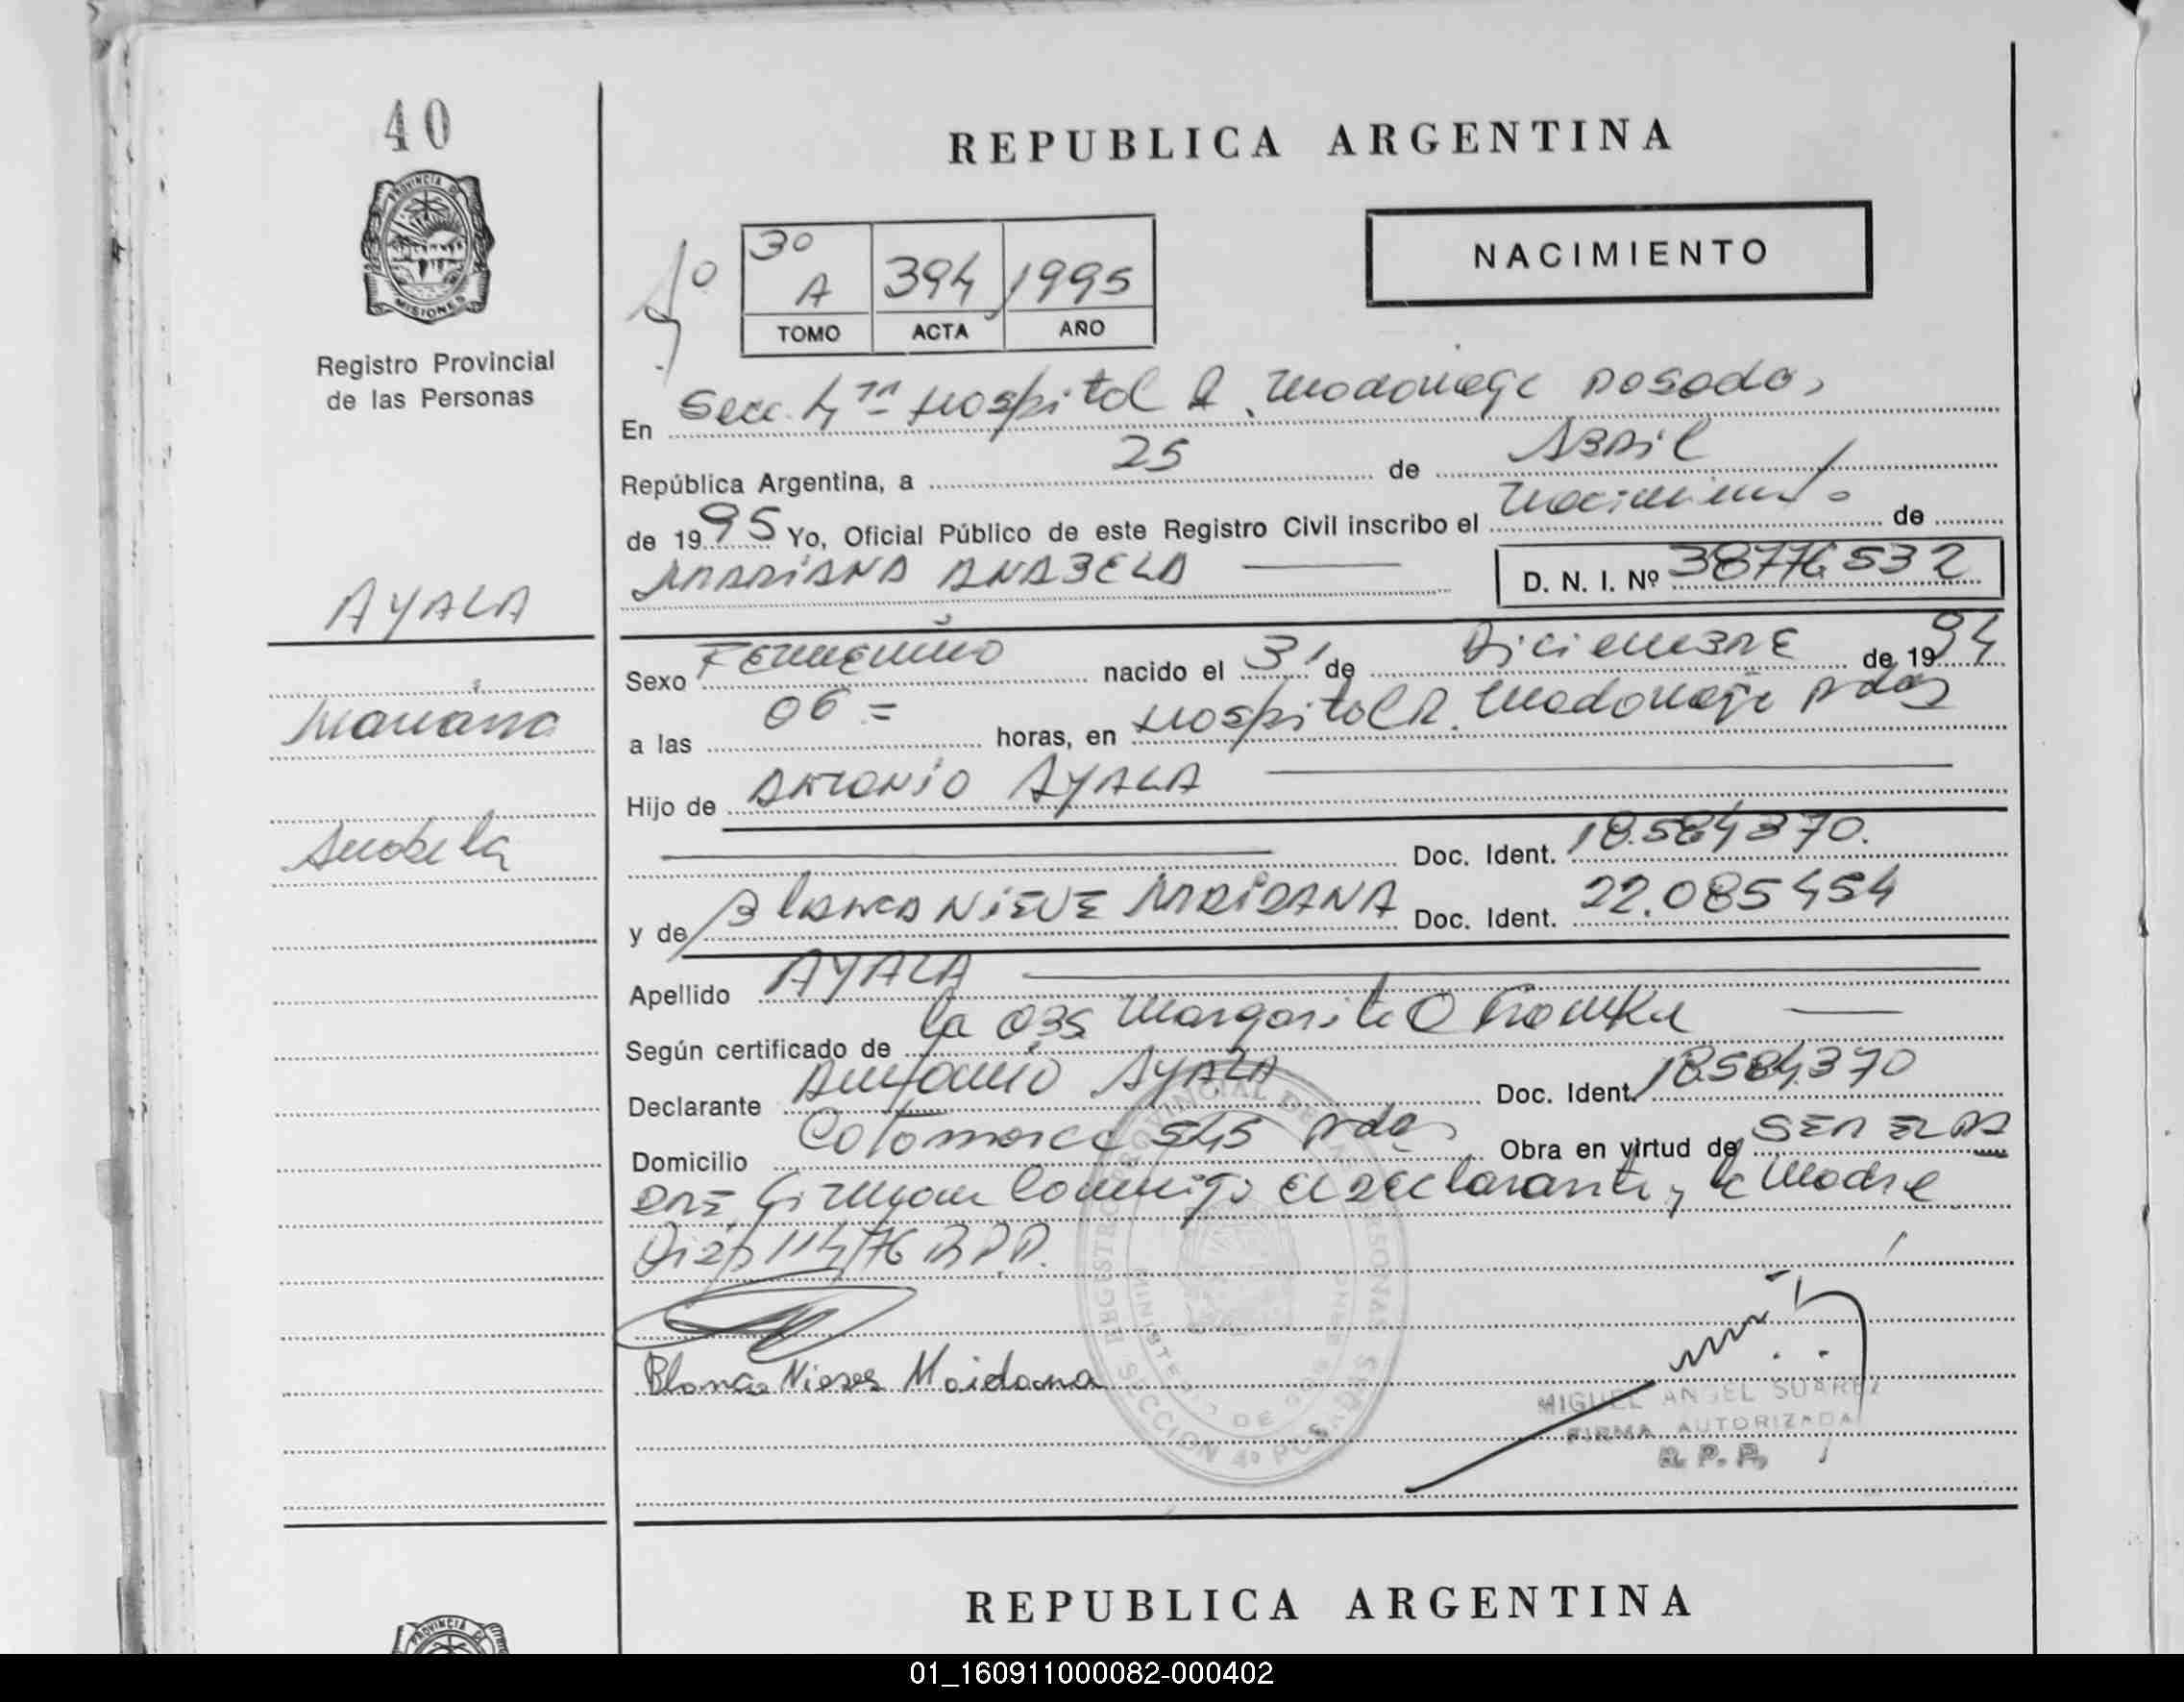 40
PROVINCIA DE
MISIONES
Registro Provincial
de las Personas
REPUBLICA ARGENTINA
NACIMIENTO
3º
A 394 1995
TOMO ACTA AÑO
En Secc. 4ta Hospital R. Madariaga Posadas
República Argentina, a 25 de Abril
de 1995 Yo, Oficial Público de este Registro Civil inscribo el Nacimiento de
MARIANA ANABELA
D. N. I. Nº 38776532
AYALA
Mariana
Anabela
Sexo Femenino nacido el 31 de Diciembre de 1994
a las 06 = horas, en Hospital R. Madariaga Pdas
Hijo de ANTONIO AYALA
Doc. Ident. 18.584370.
y de Blanca NIEVE MAIDANA Doc. Ident. 22.085454
Apellido AYALA
Según certificado de la Obs Margarita O
Declarante Antonio AYALA Doc. Ident. 18584370
Domicilio Catamarca 545 Pdas Obra en virtud de SER EL PA
DRE, Firman Conmigo el declarante y la Madre
Disp 114/76 R.P.P.
Blanca Nieves Maidana
REGISTRO PROVINCIAL DE LAS PERSONAS
MINISTERIO DE GOBIERNO
SECCION 4º POSADAS
MIGUEL ANGEL SUAREZ
FIRMA AUTORIZADA
R. P. P.
REPUBLICA ARGENTINA
PROVINCIA DE
01_160911000082-000402